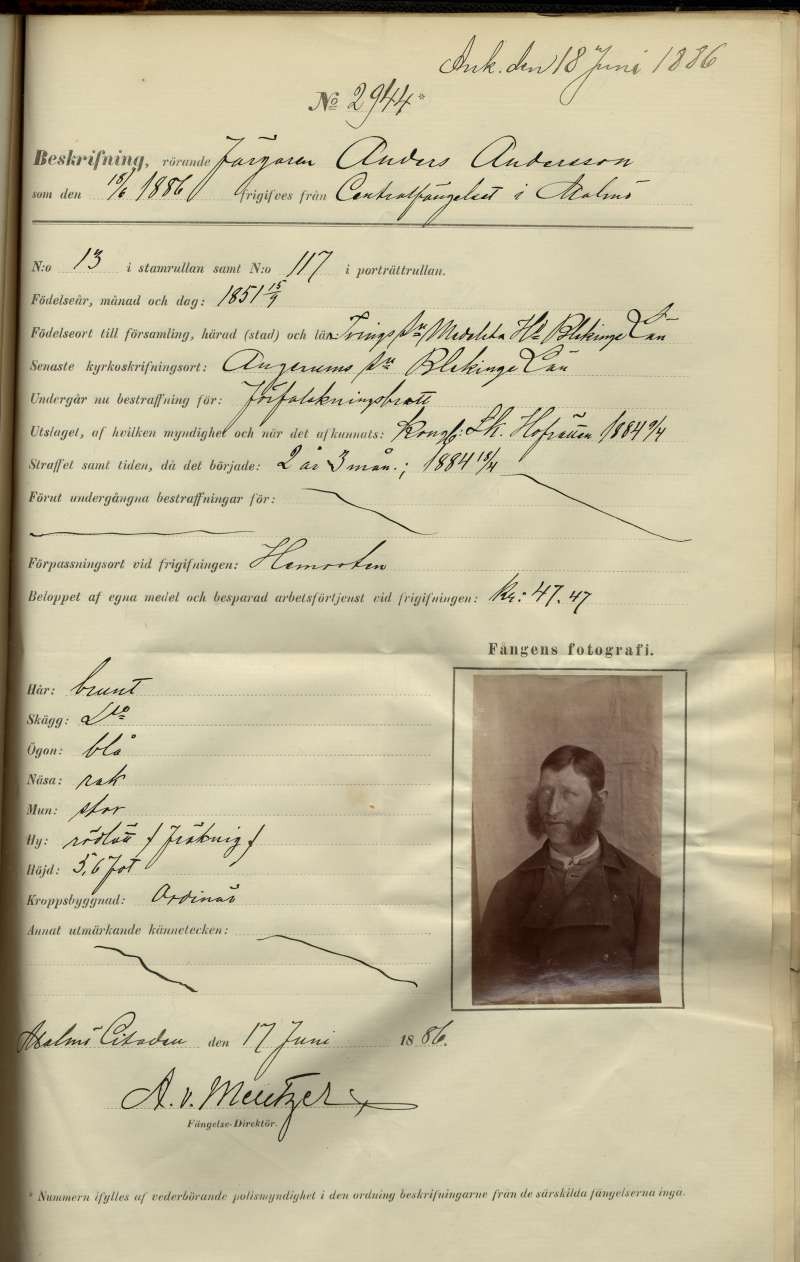 Ank. den 18 Juni 1886
No 2944*
Beskrifning, rörande Färgaren Anders Andersson
som den 18/6 1886 frigifves från Centralfängelset i Malmö
N:o 13 i stamrullan samt N:o 117 i porträttrullan.
Födelseår, månad och dag: 1851 15/9
Födelseort till församling, härad (stad) och län: Tvings Sn Medelsta Hd Blekinge Län
Senaste kyrkoskrifningsort: Augerums Sn Blekinge Län
Undergår nu bestraffning för: Förfalskningsbrott
Utslaget, af hvilken myndighet och när det afkunnats: Kongl: Hofrätten 1884 9/4
Straffet samt tiden, då det började: 2 år 3 mån.; 1884 18/4
Förut undergångna bestraffningar för:
Förpassningsort vid frigifningen: Hemorten
Beloppet af egna medel och besparad arbetsförtjenst vid frigifningen: Kr: 47.47
Fångens fotografi.
Hår: brunt
Skägg: Do
Ögon: blå
Näsa: rak
Mun: stor
Hy: rödlätt (fräknig)
Höjd: 5,6 fot
Kroppsbyggnad: Ordinär
Annat utmärkande kännetecken:
Malmö Citadell den 17 Juni 1886.
A. v. Mentzer
Fängelse-Direktör.
* Nummern ifylles af vederbörande polismyndighet i den ordning beskrifningarne från de särskilda fängelserna ingå.